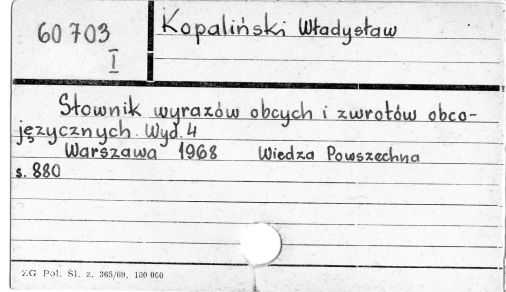 60 703
I
Kopaliński Władysław
Słownik wyrazów obcych i zwrotów obco-
języcznych. Wyd. 4
Warszawa 1968 Wiedza Powszechna
s. 880
ZG Pol. Śl. z. 365/69. 100 000